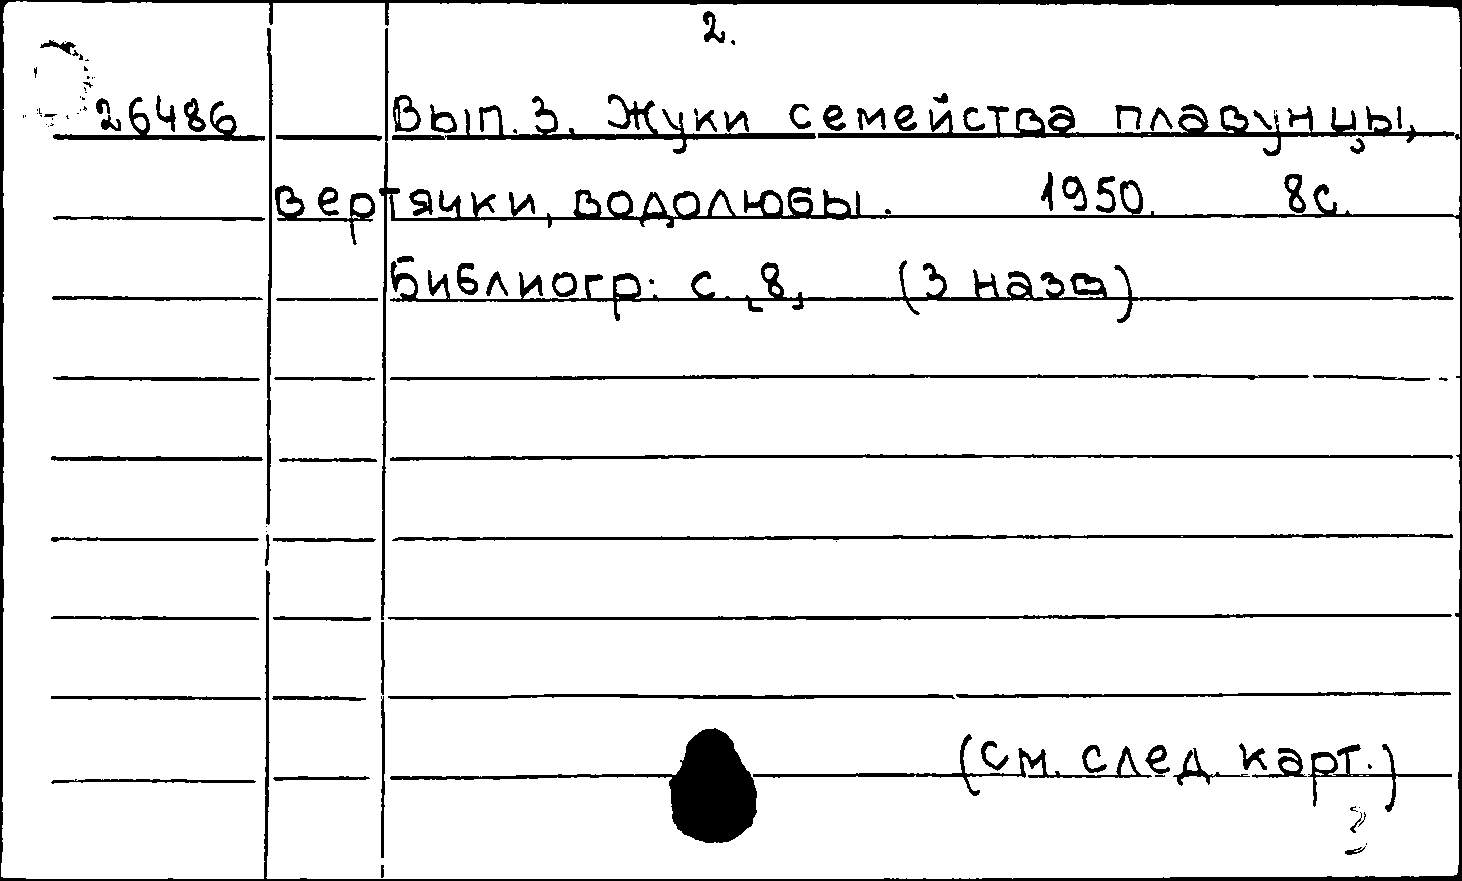 2.
26486 Вып. 3. Жуки семейства плавунцы,
вертячки, водолюбы. 1950. 8с.
Библиогр: с. [8] (3 назв)
(см. след. карт.)
3